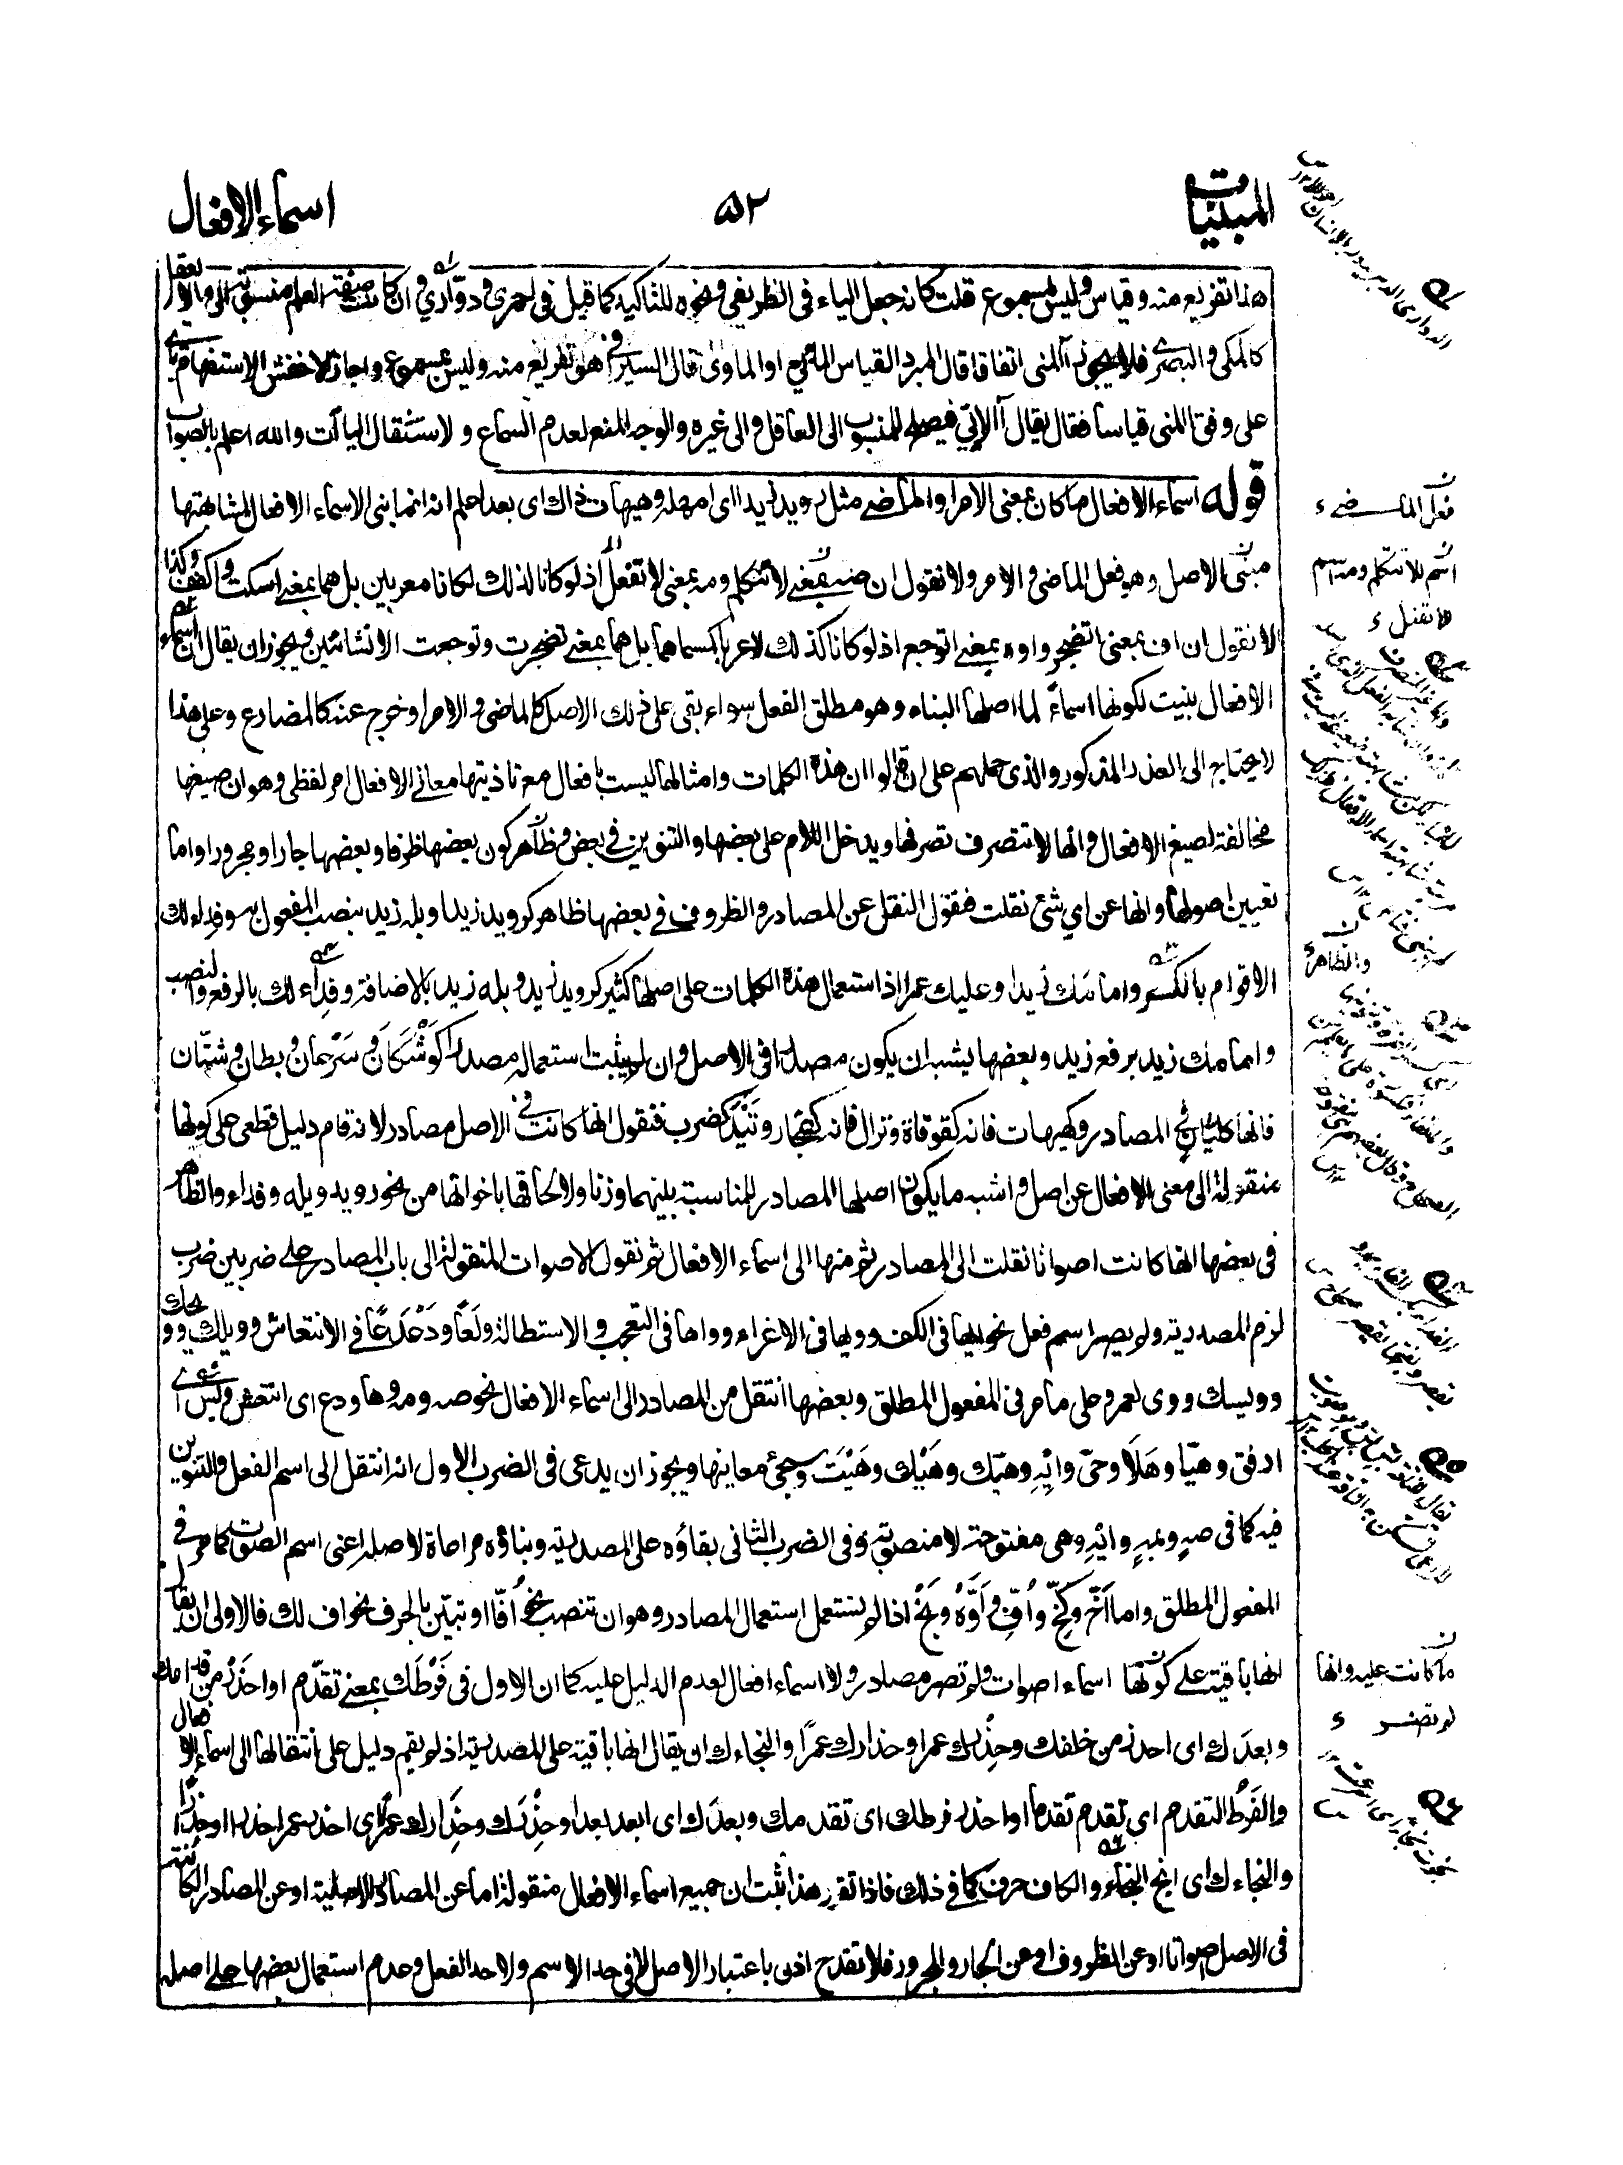 المبنيات
٥٢
اسماء الافعال
هذا تفريع منه وقياس وليس بمسموع قلت كانه جعل الياء فى الظريفى ونحوه للتاكيد كما قيل فى احمرى ودوّاري وان كانت صفة العلم منسوبة الى ما لا يعقل
كالمكى والبصرى فلا يجئ آلمنى اتفاقا قال المبرد القياس المائي او الماوىّ قال السيرافى هو تفريع منه وليس بمسموع واجاز الاخفش الاستفهام
على وفق المنى قياسا فقال يقال آلايّي فيصلح للمنسوب الى العاقل والى غيره والوجه المنع لعدم السماع ولاستثقال اليآت والله اعلم بالصواب
قوله اسماء الافعال ما كان بمعنى الامر والماضى مثل رويد زيدا اى امهله وهيهات ذاك اى بعد اعلم انه انما بنى الاسماء الافعال لمشابهتها
مبنى الاصل وهو فعل الماضى والامر ولا نقول ان صه بمعنى لا تتكلم ومه بمعنى لا تفعل اذ لو كانا كذلك لكانا معربين بل هما بمعنى اسكت واكفف وكذا
لا نقول ان اف بمعنى اتضجر واوه بمعنى اتوجع اذ لو كانا كذلك لاعربا كمسماهما بل هما بمعنى تضجرت وتوجعت الانشائيين ويجوز ان يقال ان اسماء
الافعال بنيت لكونها اسماءً لما اصله البناء وهو مطلق الفعل سواء بقى على ذلك الاصل كالماضى والامر او خرج عنه كالمضارع وعلى هذا
لا يحتاج الى العذر المذكور والذى حملهم على ان قالوا ان هذه الكلمات وامثالها ليست بافعال مع تاديتها معانى الافعال امر لفظى وهو ان صيغها
مخالفة لصيغ الافعال وانها لا تتصرف تصرفها ويدخل اللام على بعضها والتنوين فى بعض وظاهر كون بعضها ظرفا وبعضها جارا ومجرورا واما
تعيين اصولها وانها عن اي شئ نقلت فنقول النقل عن المصادر والظروف فى بعضها ظاهر كرويد زيدا وبله زيدا بنصب المفعول به وفداءٍ لك
الاقوام بالكسر وامامك زيدا وعليك عمرا اذ استعمال هذه الكلمات على اصلها كثير كرويد زيد وبله زيد بالاضافة وفداء لك بالرفع والنصب
وامامك زيد برفع زيد وبعضها يشبه ان يكون مصدرا فى الاصل وان لم يثبت استعماله مصدرا كوَشْكَانَ وسَرْعان وبطان وشتّان
فانها كليّان فى المصادر وكهيهات فانه كقوقاة ونزال فانه كفجار وتَيْدَ كضرب فنقول انها كانت فى الاصل مصادر لانه قام دليل قطعى على كونها
منقولة الى معنى الافعال عن اصل واشبه ما يكون اصلها المصادر للمناسبة بينهما وزنا ولالحاقها باخواتها من نحو رويد وبله وفداء والظاهر
فى بعضها انها كانت اصواتا نقلت الى المصادر ثم منها الى اسماء الافعال ثم نقول الاصوات المنقولة الى باب المصادر على ضربين ضرب
لزم المصدرية ولم يصر اسم فعل نحو ايها فى الكف وويها فى الاغراء وواها فى التعجب والاستطالة ولَعاً ودَعْدَعاً فى الانتعاش وويلك وويحك
وويسك ووى لعمرو على ما مر فى المفعول المطلق وبعضها انتقل من المصادر الى اسماء الافعال نحو صه ومه وها ودع اى انتعش
ارفق وهيّا وهَلا وحىّ وايْهِ وهيّك وهَيْك وهَيْتَ وسيجئ معانيها ويجوز ان يدعى فى الضرب الاول انه انتقل الى اسم الفعل والتنوين
فيه كما فى صهٍ ومهٍ وايهٍ وهى مفتوحة لا منصوبة وفى الضرب الثانى بقاؤه على المصدرية وبناؤه مراعاة لاصله اعنى اسم الصوت كما مر فى
المفعول المطلق واما أخّ وكخّ وأفّ وأوّهْ وبَخْ اذا لم يستعمل استعمال المصادر وهو ان تنصب نحو أفّا او تبين بالحرف نحو اف لك فالاولى ان يقال
انها باقية على كونها اسماء اصوات ولم تصر مصادر ولا اسماء افعال لعدم الدليل عليه كما ان الاولى فى فَرْطَك بمعنى تقدّم او احذر من قدامك
وبعدَك اى احذر من خلفك وحِذْرك عمرا وحذارك عمرًا والنجاءك ان يقال انها باقية على المصدرية اذ لم يقم دليل على انتقالها الى اسماء الافعال
والفَرْط التقدم اى تقدم تقدما او احذر فرطك اى تقدمك وبعدَك اى ابعد بعدا وحِذْرَك وحذَارك عمرًا اى احذر عمرا حذرا او حذارًا
والنجاءك اى انج النجاء والكاف حرف كما فى ذلك فاذا تقرر هذا ثبت ان جميع اسماء الافعال منقولة اما عن المصادر الاصلية او عن المصادر الكائنة
فى الاصل اصواتا او عن الظروف او عن الجار والمجرور فلا تقدح اذن باعتبار الاصل لا فى حد الاسم ولا حد الفعل وعدم استعمال بعضها على اصله
فعل الماضى
اسم للا تتكلم ومه اسم
لا تفعل
والظاهر
ما كانت عليه وانها
لم تصر